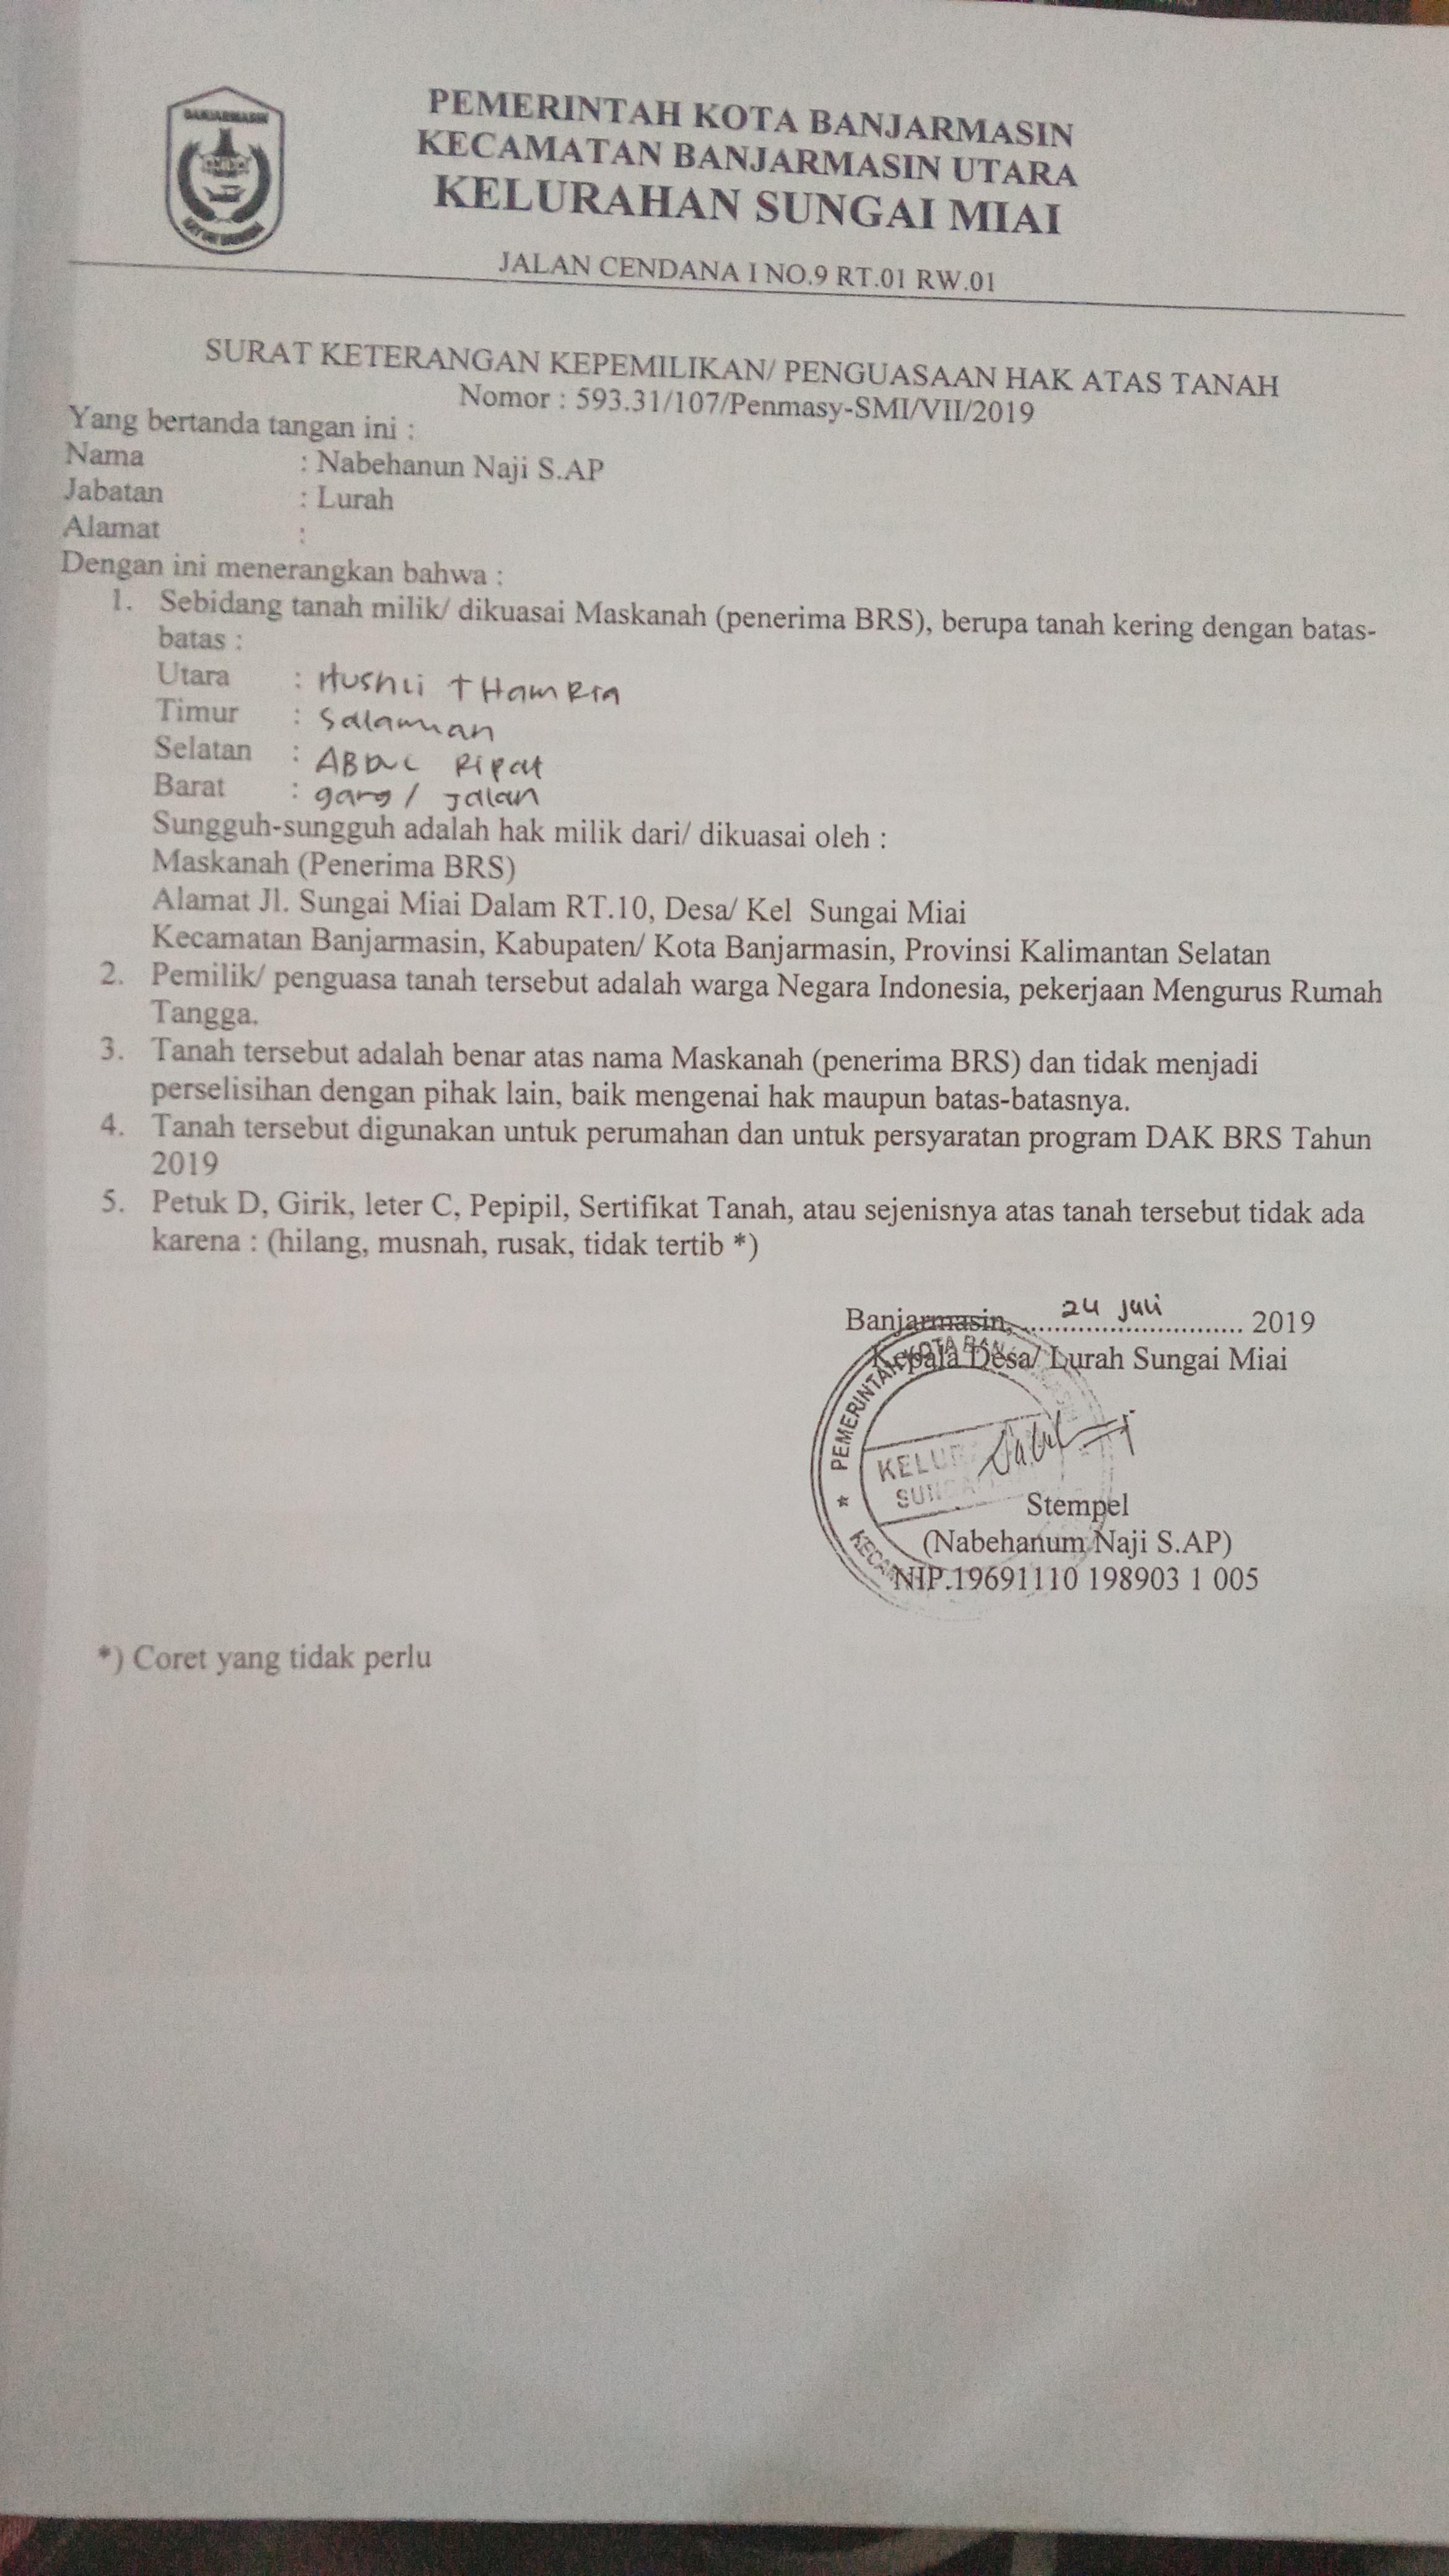 BANJARMASIN
PEMERINTAH KOTA BANJARMASIN
KECAMATAN BANJARMASIN UTARA
KELURAHAN SUNGAI MIAI
JALAN CENDANA I NO.9 RT.01 RW.01
SURAT KETERANGAN KEPEMILIKAN/ PENGUASAAN HAK ATAS TANAH
Nomor : 593.31/107/Penmasy-SMI/VII/2019
Yang bertanda tangan ini :
Nama : Nabehanun Naji S.AP
Jabatan : Lurah
Alamat :
Dengan ini menerangkan bahwa :
1. Sebidang tanah milik/ dikuasai Maskanah (penerima BRS), berupa tanah kering dengan batas-
batas :
Utara : Hushli THamRin
Timur : Salamuan
Selatan : ABDUL Ripat
Barat : gang / Jalan
Sungguh-sungguh adalah hak milik dari/ dikuasai oleh :
Maskanah (Penerima BRS)
Alamat Jl. Sungai Miai Dalam RT.10, Desa/ Kel Sungai Miai
Kecamatan Banjarmasin, Kabupaten/ Kota Banjarmasin, Provinsi Kalimantan Selatan
2. Pemilik/ penguasa tanah tersebut adalah warga Negara Indonesia, pekerjaan Mengurus Rumah
Tangga.
3. Tanah tersebut adalah benar atas nama Maskanah (penerima BRS) dan tidak menjadi
perselisihan dengan pihak lain, baik mengenai hak maupun batas-batasnya.
4. Tanah tersebut digunakan untuk perumahan dan untuk persyaratan program DAK BRS Tahun
2019
5. Petuk D, Girik, leter C, Pepipil, Sertifikat Tanah, atau sejenisnya atas tanah tersebut tidak ada
karena : (hilang, musnah, rusak, tidak tertib *)
Banjarmasin, 24 Juli 2019
Kepala Desa/ Lurah Sungai Miai
PEMERINTAH KOTA
Stempel
(Nabehanum Naji S.AP)
NIP.19691110 198903 1 005
*) Coret yang tidak perlu